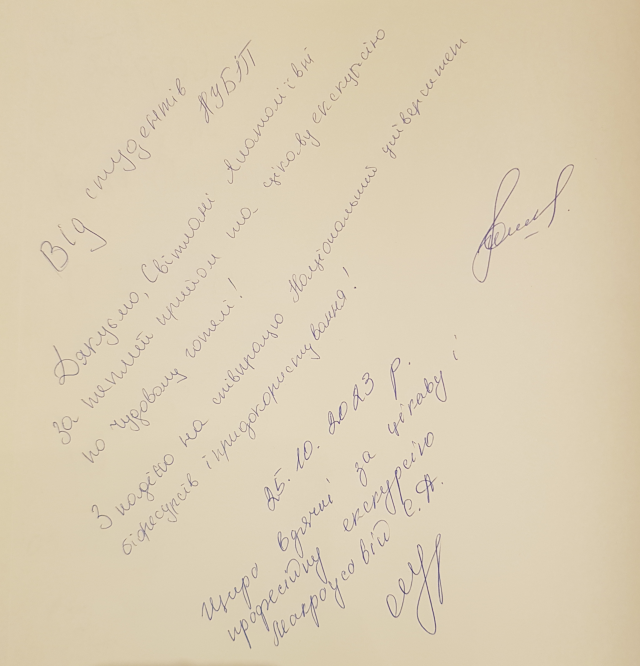 Від студентів
НУБіП
Дякуємо, Світлані Анатоліївні
за теплий прийом та цікаву екскурсію
по чудовому готелі!
З надією на співпрацю Національний університет
біоресурсів і природокористування!
25.10.2023 р.
Щиро вдячні за цікаву і
професійну екскурсію
С.А.